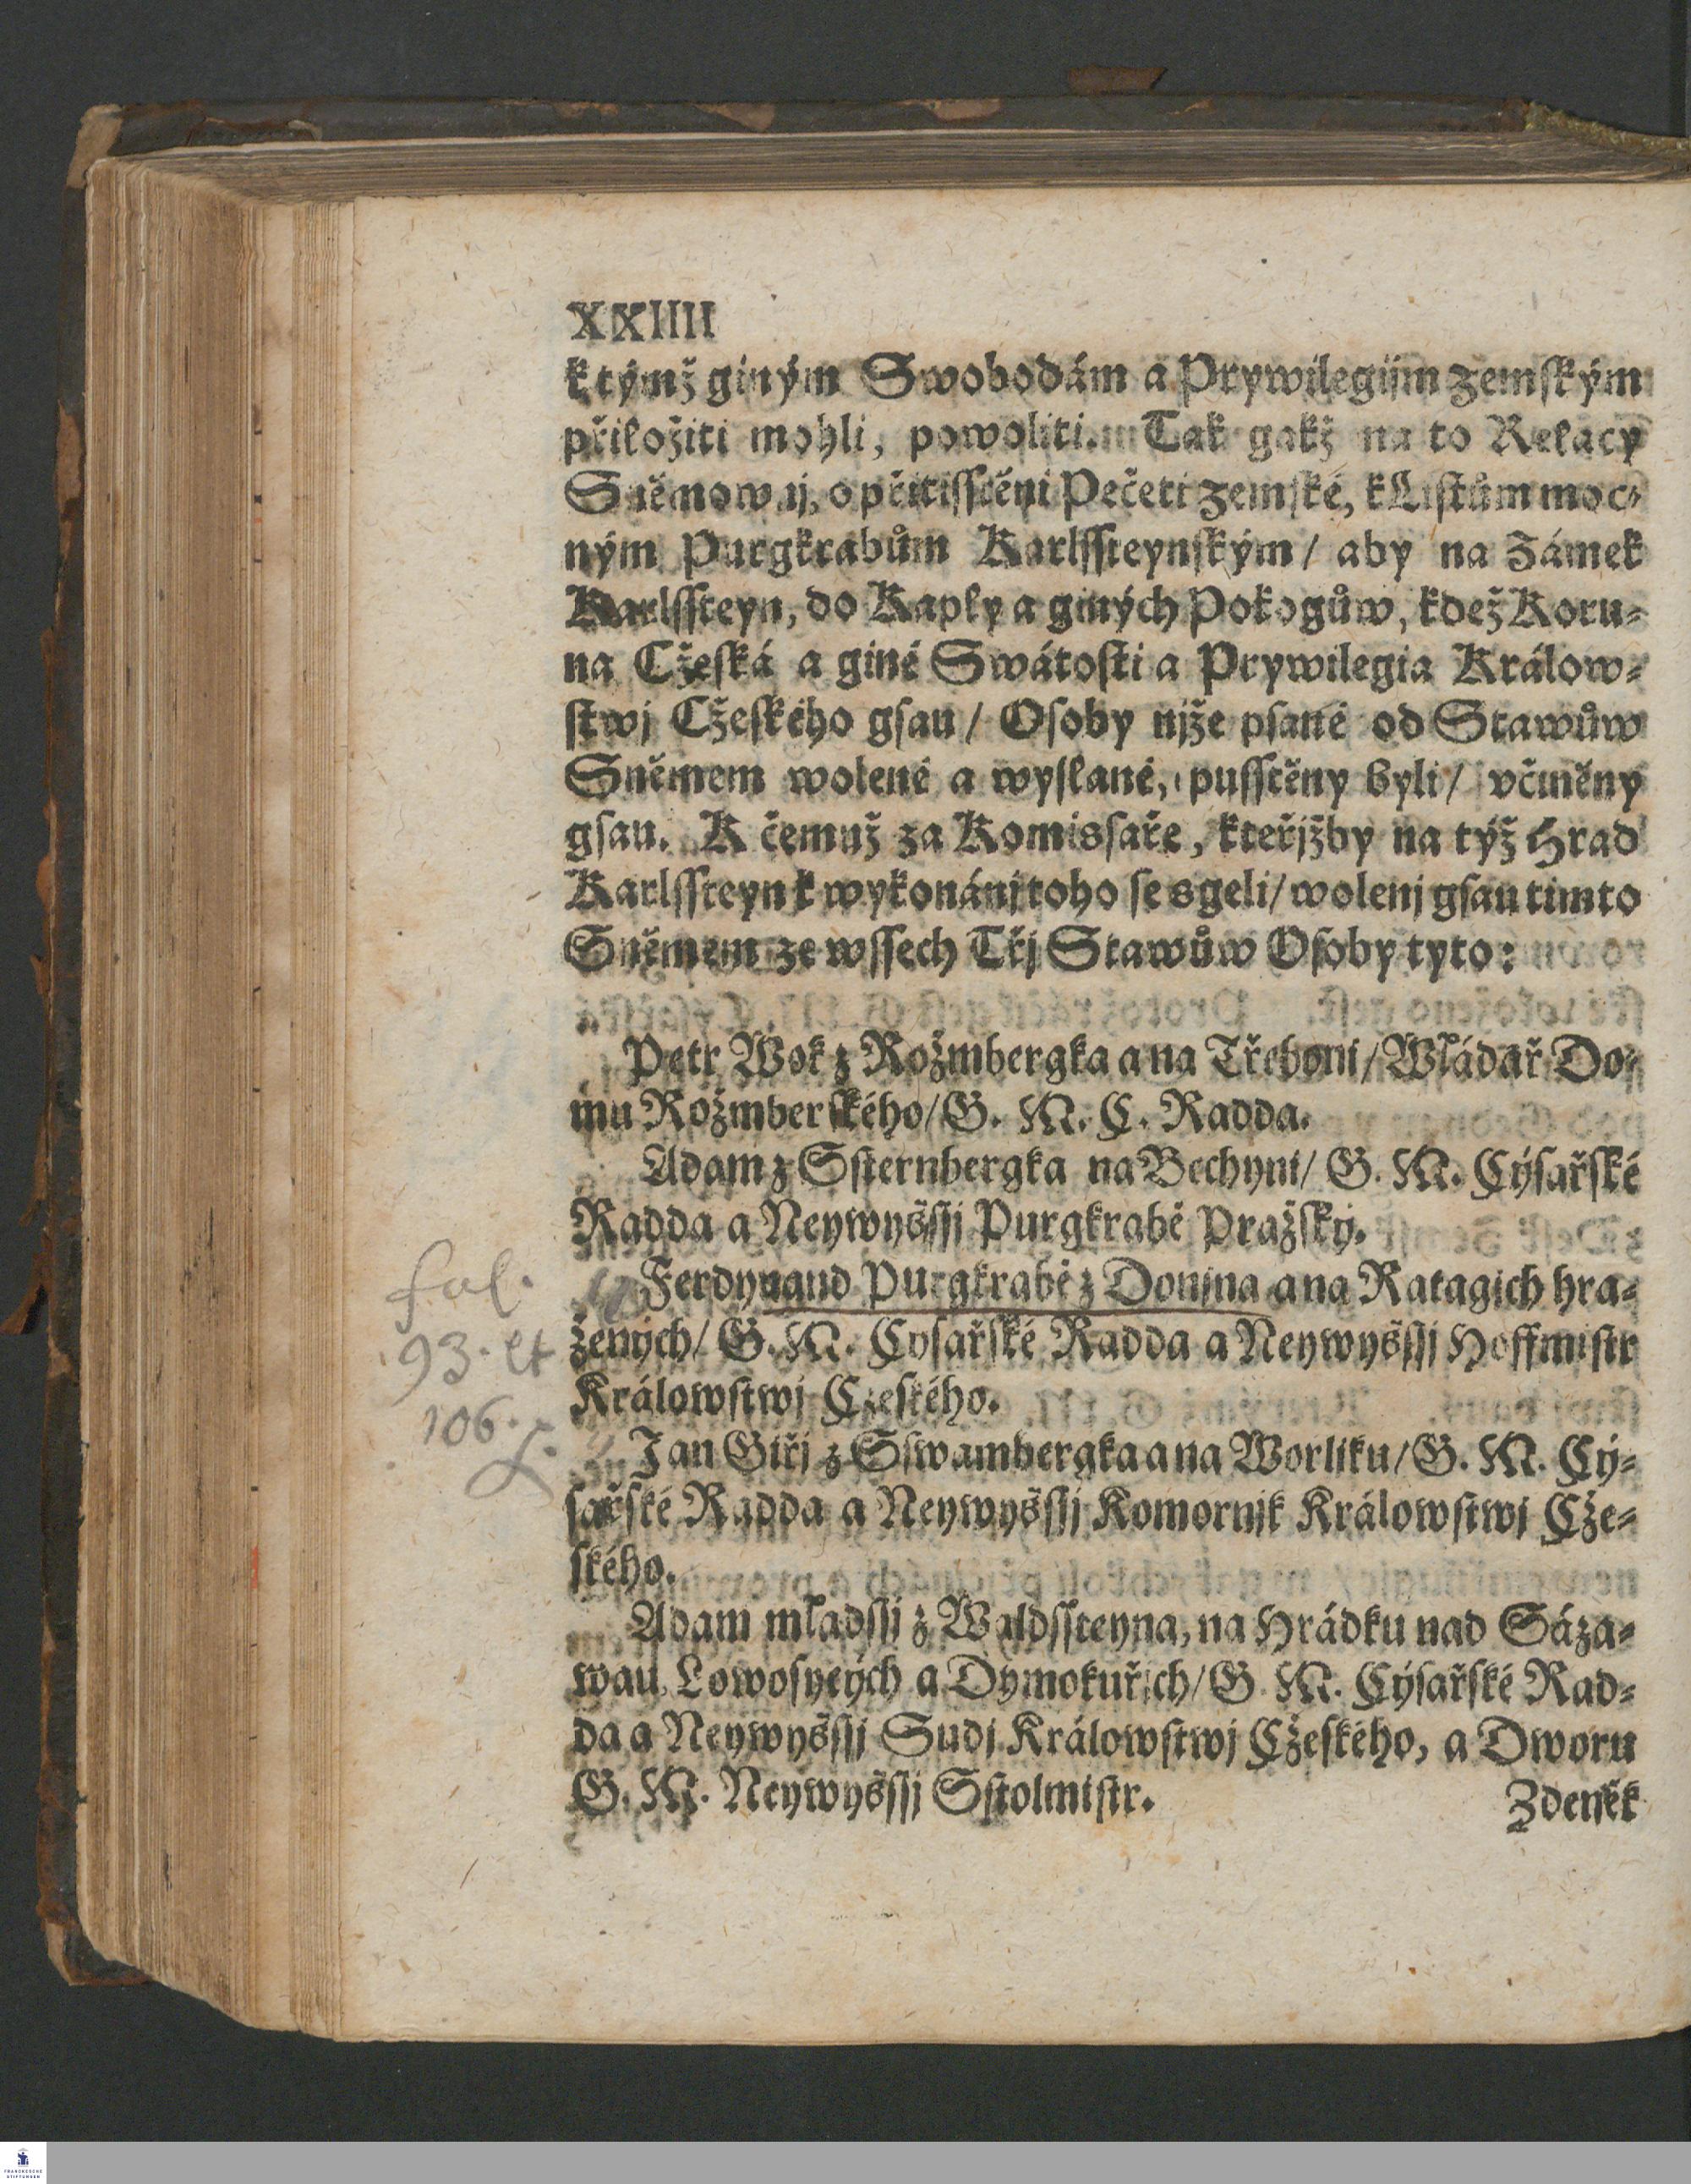 XXIIII
k týmž giným Swobodám a Prywilegijm zemským
přiložiti mohli, powoliti. Tak gakž na to Relacy
Sněmownj, o přitisstěnj Pečeti zemské, k Listům moc-
ným Purgkrabům Karlssteynským / aby na Zámek
Karlssteyn, do Kaply a giných Pokogůw, kdež Koru-
na Cžeská a giné Swátosti a Prywilegia Králow-
stwj Cžeského gsau / Osoby njže psané od Stawůw
Sněmem wolené a wyslané, pusstěny byli / včiněny
gsau. K čemuž za Komissaře, kteřjžby na týž Hrad
Karlssteyn k wykonánj toho se sgeli / wolenj gsau timto
Sněmem ze wssech Třj Stawůw Osoby tyto:
Petr Wok z Rožmbergka a na Třeboni / Wládař Do-
mu Rožmberského / G. M. C. Radda.
Adam z Ssternbergka na Bechyni / G. M. Cýsařské
Radda a Neywyšssj Purgkrabě Pražský.
Ferdynand Purgkrabě z Donjna a na Ratagich hra-
žených / G. M. Cysařské Radda a Neywyšssj Hoffmistr
Králowstwj Czeského.
fol.
93. et
106.
Jan Giřj z Sswambergka a na Worliku / G. M. Cý-
sařské Radda a Neywyšssj Komornjk Králowstwj Cže-
ského.
Adam mladssj z Waldssteyna, na Hrádku nad Sáza-
wau, Lowosycých a Dymokuřjch / G. M. Cýsařské Rad-
da a Neywyšssj Sudj Králowstwj Cžeského, a Dworu
G. M. Neywyšssj Sstolmistr.
Zdeněk